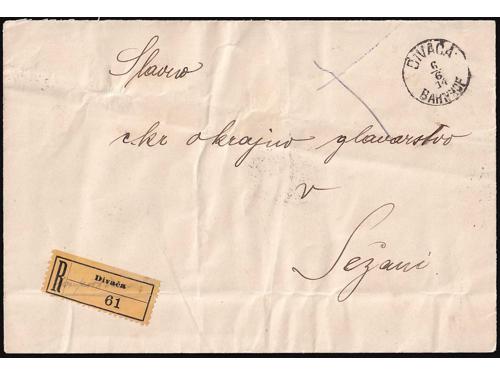 DIVAČA
6
6
14
Slavno
ckr okrajno glavarstvo
v
Sežani
R
Divača
61